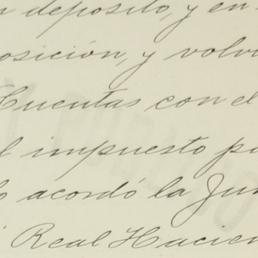 n deposito, y en
posición, y volvi
Cuentas con el
l impuesto pa
lo acordó la Jun
i Real Hacien